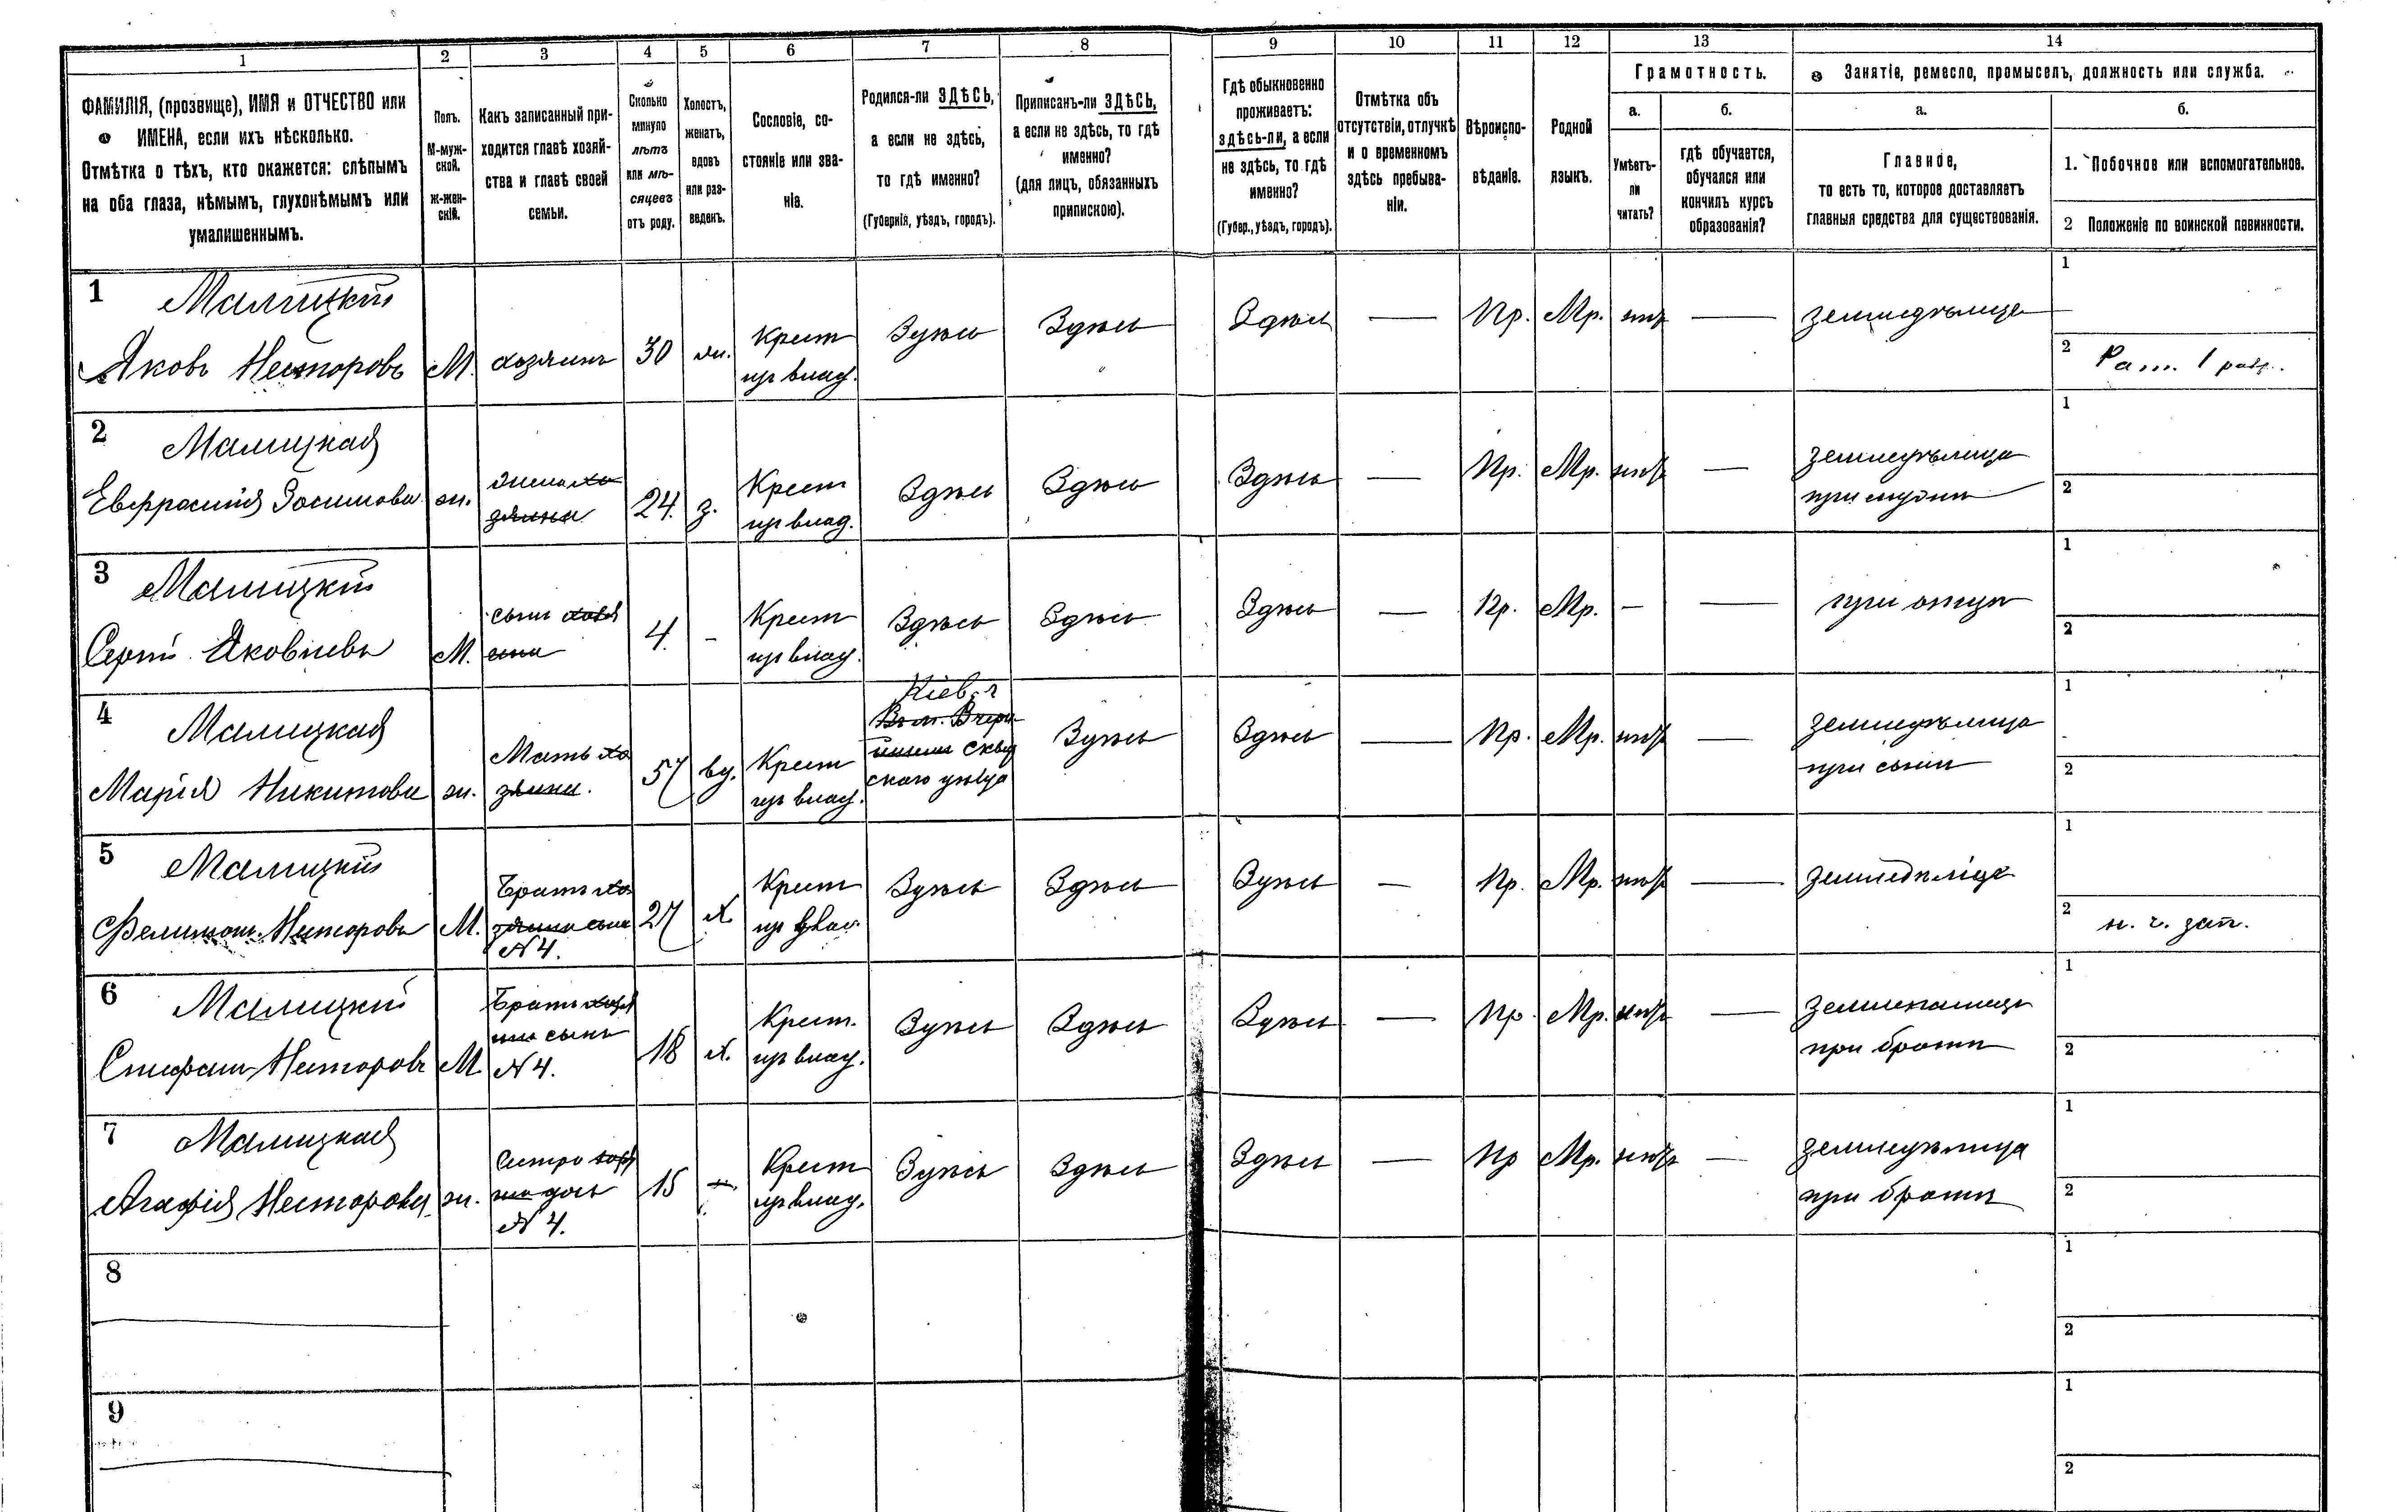 1 2 3 4 5 6 7 8 9 10 11 12 13 14
ФАМИЛІЯ, (прозвище), ИМЯ и ОТЧЕСТВО или
ИМЕНА, если ихъ нѣсколько.
Отмѣтка о тѣхъ, кто окажется: слѣпымъ
на оба глаза, нѣмымъ, глухонѣмымъ или
умалишеннымъ.
Полъ.
М-муж-
ской.
Ж-жен-
скій.
Какъ записанный при-
ходится главѣ хозяй-
ства и главѣ своей
семьи.
Сколько
минуло
лѣтъ
или мѣ-
сяцевъ
отъ роду.
Холостъ,
женатъ,
вдовъ
или раз-
веденъ.
Сословіе, со-
стояніе или зва-
ніе.
Родился-ли ЗДѢСЬ,
а если не здѣсь,
то гдѣ именно?
(Губернія, уѣздъ, городъ).
Приписанъ-ли ЗДѢСЬ,
а если не здѣсь, то гдѣ
именно?
(для лицъ, обязанныхъ
припискою).
Гдѣ обыкновенно
проживаетъ:
здѣсь-ли, а если
не здѣсь, то гдѣ
именно?
(Губер., уѣздъ, городъ).
Отмѣтка объ
отсутствіи, отлучкѣ
и о временномъ
здѣсь пребыва-
ніи.
Вѣроиспо-
вѣданіе.
Родной
языкъ.
Грамотность.
а.
Умѣетъ-
ли
читать?
б.
гдѣ обучается,
обучался или
кончилъ курсъ
образованія?
Занятіе, ремесло, промыселъ, должность или служба.
а.
Главное,
то есть то, которое доставляетъ
главныя средства для существованія.
б.
1. Побочное или вспомогательное.
2 Положеніе по воинской повинности.
1 Малицкій
Яковъ Несторовъ
М.
хозяинъ
30
жн.
Крест
изъ влад.
Здѣсь
Здѣсь
Здѣсь
—
Пр.
Мр.
нѣтъ
—
земледѣлецъ
1
2 Рат. 1 разр.
2 Малицкая
Евфросинія Зосимова
ж.
жена хо
зяина
24.
з.
Крест
изъ влад.
Здѣсь
Здѣсь
Здѣсь
—
Пр.
Мр.
нѣтъ
—
земледѣлица
при мужѣ
1
2
3 Малицкій
Сергій Яковлевъ
М.
сынъ хозя
ина
4.
-
Крест
изъ влад.
Здѣсь
Здѣсь
Здѣсь
—
Пр.
Мр.
—
—
при отцѣ
1
2
4 Малицкая
Марія Никитова
ж.
Мать хо
зяина.
57
вд.
Крест
изъ влад.
Кіев. г
скаго уѣзда
Здѣсь
Здѣсь
—
Пр.
Мр.
нѣтъ
—
земледѣлица
при сынѣ
1
2
5 Малицкій
Филимонъ Несторовъ
М.
Братъ хо
зяина сынъ
№ 4.
27
х
Крест
изъ влад.
Здѣсь
Здѣсь
Здѣсь
—
Пр.
Мр.
нѣтъ
—
земледѣлецъ
1
2 н. ч. зап.
6 Малицкій
Стефанъ Несторовъ
М
Братъ хозя
ина сынъ
№ 4.
18
х.
Крест.
изъ влад.
Здѣсь
Здѣсь
Здѣсь
—
Пр.
Мр.
нѣтъ
—
земледѣлецъ
при братѣ
1
2
7 Малицкая
Агафія Несторова
ж.
Сестра хозя
ина дочь
№ 4.
15
—
Крест
изъ влад.
Здѣсь
Здѣсь
Здѣсь
—
Пр
Мр.
нѣтъ
—
земледѣлица
при братѣ
1
2
8
1
2
9
1
2